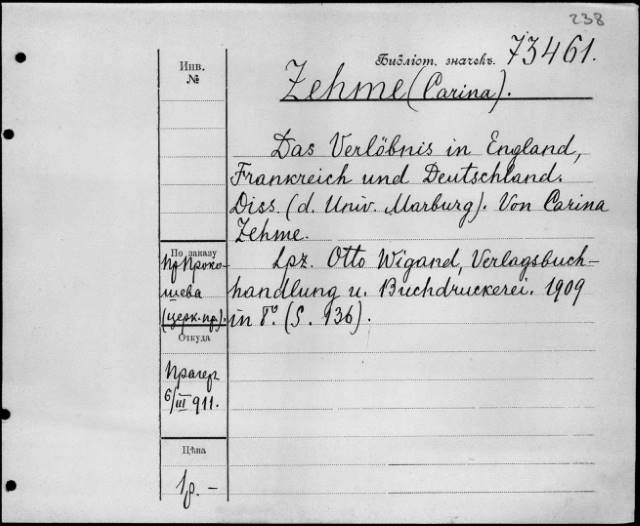 238
Библіот. значекъ. 73461.
Инв.
№
Zehme (Carina).
Das Verlöbnis in England,
Frankreich und Deutschland.
Diss. (d. Univ. Marburg). Von Carina
Zehme.
По заказу
пр Проко-
шева
(церк. пр.).
Lpz. Otto Wigand, Verlagsbuch-
handlung u. Buchdruckerei. 1909
in 8°. (S. 136).
Откуда
Прагеръ
6/III 911.
Цѣна
1р. -